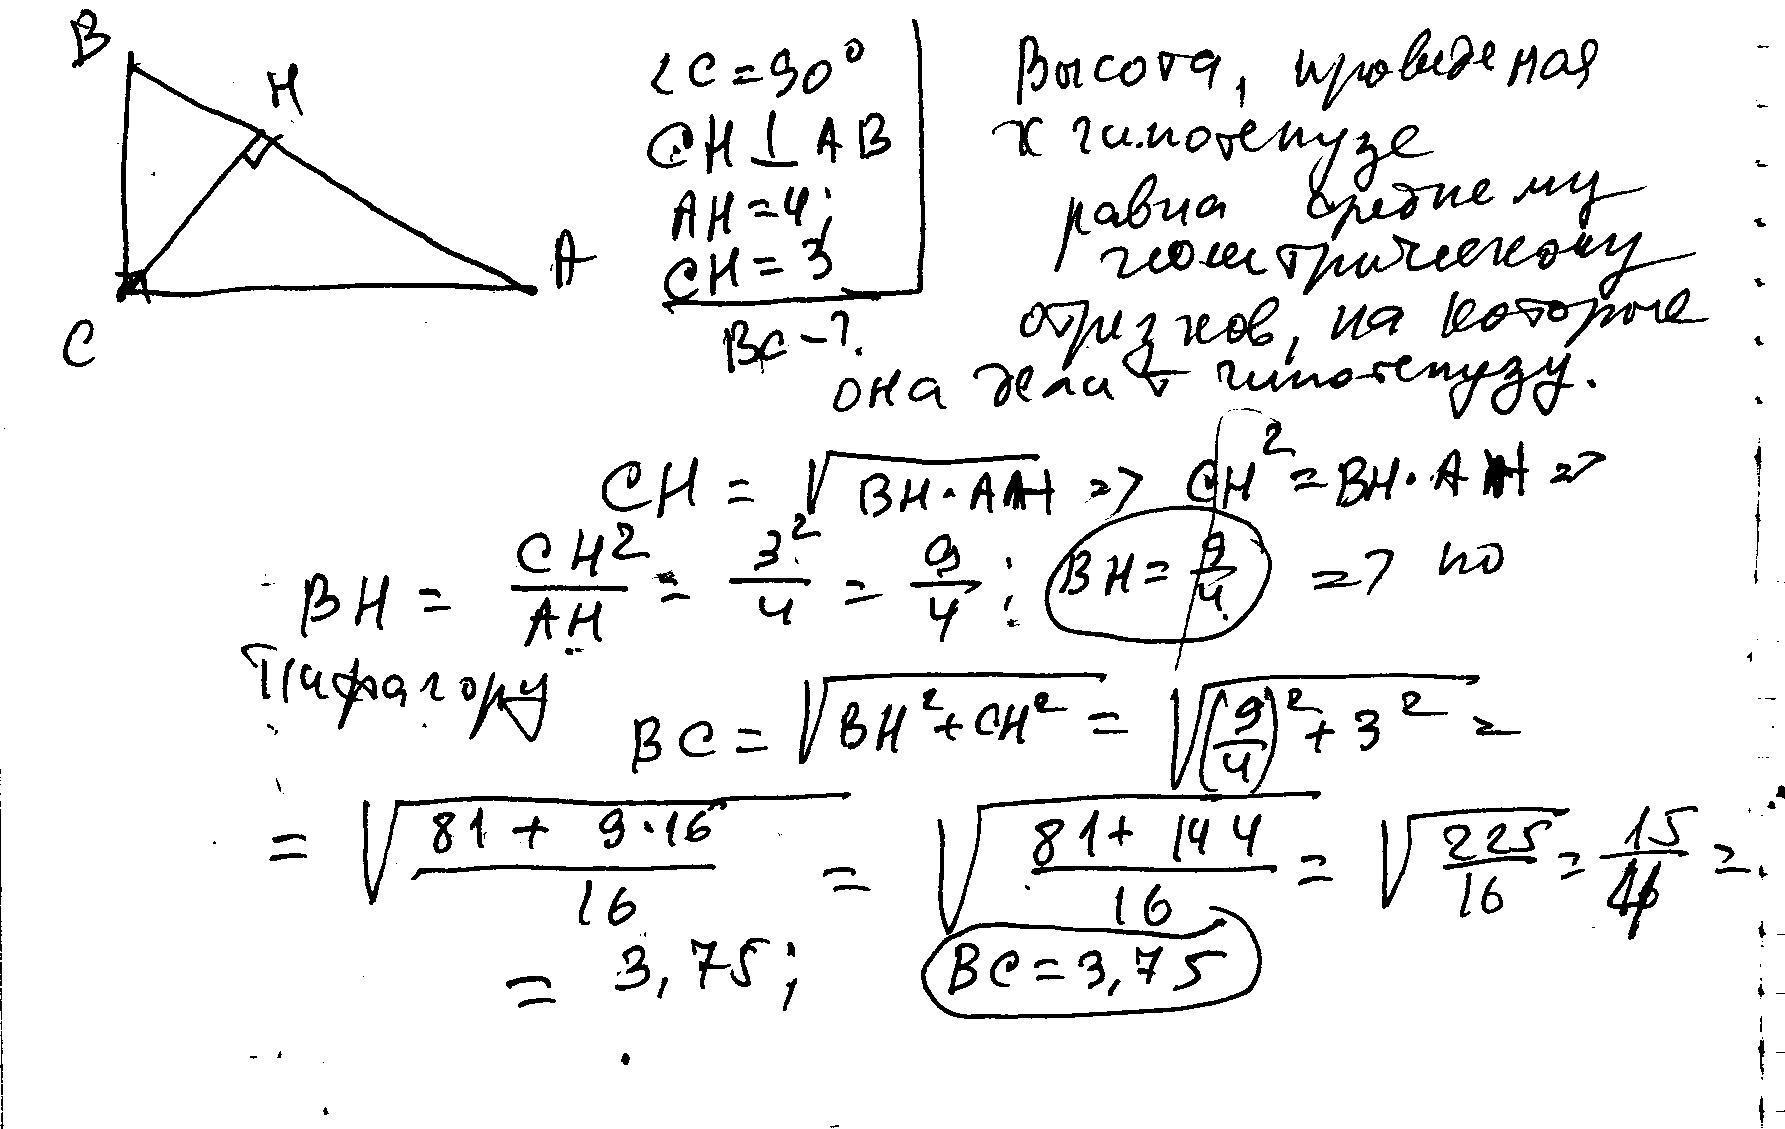 B
H
A
C
∠C=90°
CH⊥AB
AH=4;
CH=3
BC-?
Высота, проведеная
к гипотенузе
равна среднему
геометрическому
отрезков, на которые
она делит гипотенузу.
CH = √(BH·AH) => CH² = BH·AH =>
BH = CH²/AH = 3²/4 = 9/4; BH = 9/4 => по
Пифагору
BC = √(BH²+CH²) = √((9/4)²+3²) =
= √((81+9·16)/16) = √((81+144)/16) = √(225/16) = 15/4 =
= 3,75; BC=3,75